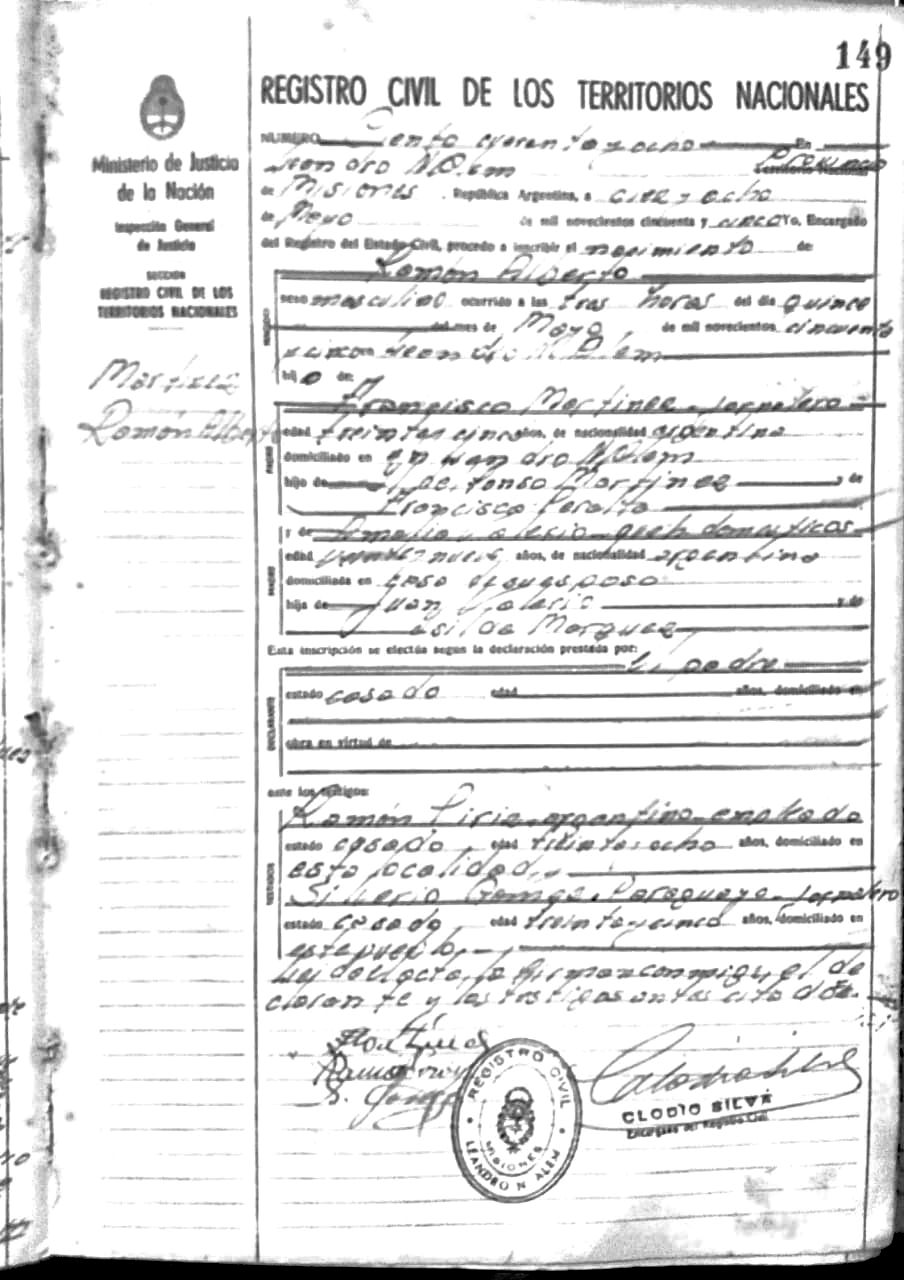 149
REGISTRO CIVIL DE LOS TERRITORIOS NACIONALES
Ministerio de Justicia
de la Nación
Inspección General
de Justicia
SECCION
REGISTRO CIVIL DE LOS
TERRITORIOS NACIONALES
Martinez
Ramón Alberto
NUMERO Ciento cuarenta y ocho En
Leandro N Alem Provincia Territorio Nacional
de Misiones, República Argentina, a diez y ocho
de Mayo de mil novecientos cincuenta y cinco Yo, Encargado
del Registro del Estado Civil, procedo a inscribir el nacimiento de:
Ramón Alberto
sexo masculino ocurrido a las tres horas del día quince
del mes de Mayo de mil novecientos cincuenta
y cinco en Leandro N Alem
hijo de:
PADRE
Francisco Martinez jornalero
edad treinta y cinco años, de nacionalidad argentina
domiciliado en en Leandro N Alem
hijo de Martinez y de
Francisca Peralta
MADRE
y de
edad años, de nacionalidad argentina
domiciliada en casa de su esposo
hija de Juan y de
Marquez
Esta inscripción se efectúa según la declaración prestada por:
el padre
DECLARANTE
estado casado edad años, domiciliado en
obra en virtud de
ante los testigos:
TESTIGOS
Ramón argentino empleado
estado casado edad treinta y ocho años, domiciliado en
esta localidad
Silverio Paraguayo jornalero
estado casado edad treinta y cinco años, domiciliado en
este pueblo
Leida el acta, la firman conmigo, el de
clarante y los testigos antes citados.
REGISTRO CIVIL
MISIONES
LEANDRO N. ALEM
CLODIO SILVA
Encargado del Registro Civil